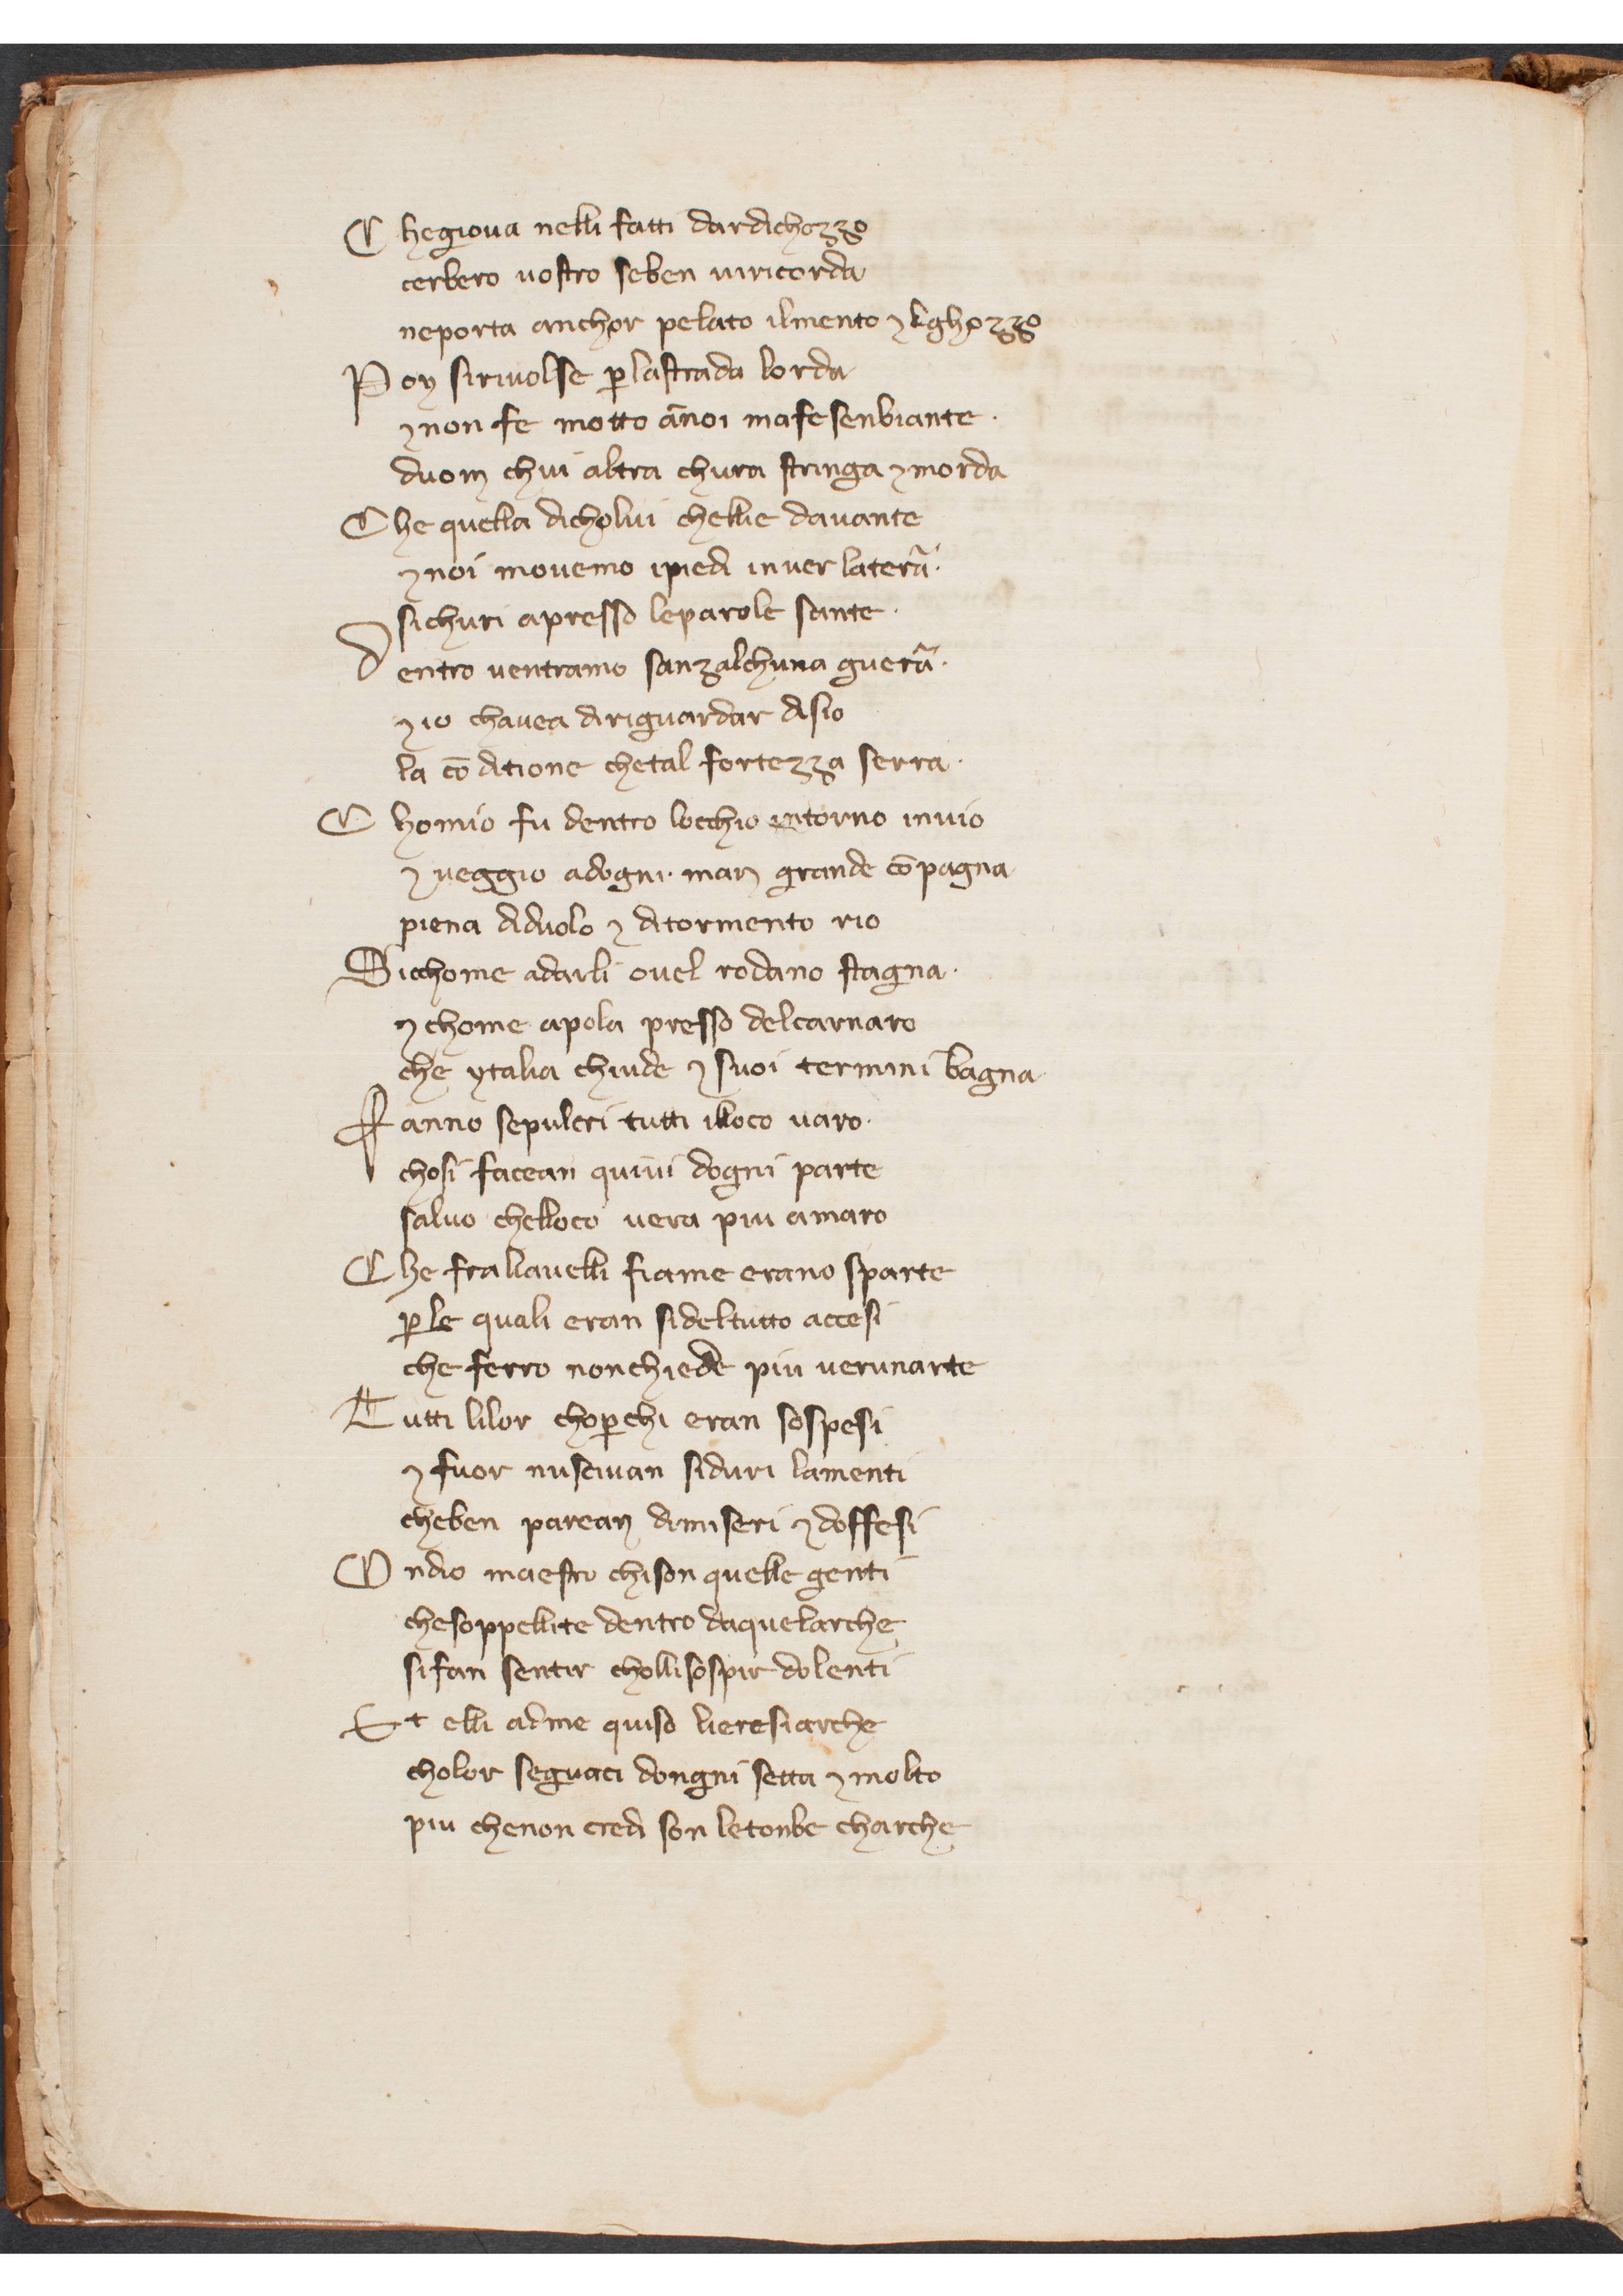 C hegiova nelli fatti dardichozzo
cerbero vostro seben viricorda
neporta anchor pelato ilmento ⁊ lghozzo
P oy sirivolse ꝑ lastrada lorda
⁊ non fe motto ānoi mafesenbiante.
duom chui altra chura stringa ⁊ morda
C he quella dicholui chellie davante
⁊ noi movemo ipiedi inver laterã.
sichuri apresso leparole sante.
D entro ventramo sanzalchuna guerã.
⁊ io chavea diriguardar disio
la cōditione chetal fortezza serra.
C homio fu dentro locchio intorno invio
⁊ veggio adogni man grande cōpagna
piena diduolo ⁊ ditormento rio
S icchome adarli ovel rodano stagna.
⁊ chome apola presso delcarnaro
che ytalia chiude ⁊ suoi termini bagna
F anno sepulcri tutti illoco varo.
chosi facean quivi dogni parte
salvo chelloco vera piu amaro
C he fraliavelli fiame erano sparte
ꝑ le quali eran sideltutto accesi
che ferro nonchiede piu verunarte
T utti lilor choꝑchi eran sospesi
⁊ fuor nuscivan siduri lamenti
cheben parean dimiseri ⁊ doffesi
O ndio maestro chison quelle genti
chesoppellite dentro daquelarche
sifan sentir chollisospir dolenti
E t elli adme quiso lieresiarche
cholor seguaci dongni setta ⁊ molto
piu chenon credi son letonbe charche